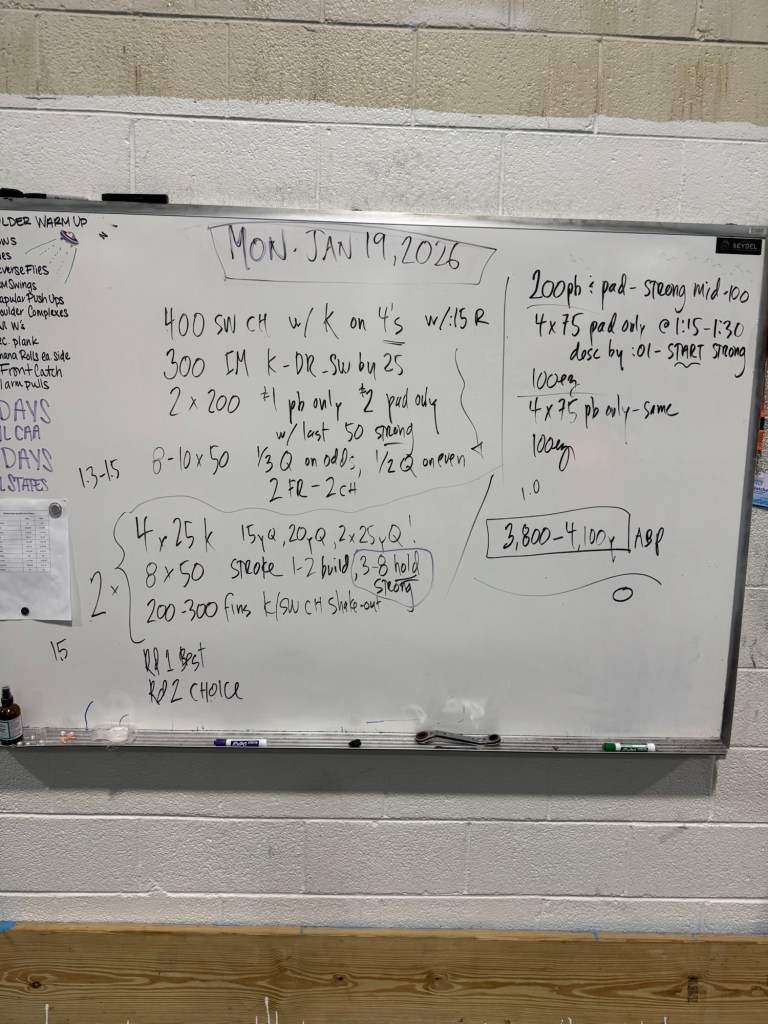 LDER WARM UP
WS
verse Flies
m Swings
apular Push Ups
oulder Complexes
W's
c. plank
mana Rolls ea. side
Front Catch
l arm pulls
DAYS
IL CAA
DAYS
L STATES
MON. JAN 19, 2026
400 SW CH w/ K on 4's w/:15 R
300 IM K-DR-SW by 25
2 x 200 #1 pb only #2 pad only
w/ last 50 strong
1.3-1.5
8-10 x 50 1/3 Q on odds, 1/2 Q on even
2 FR - 2 CH
2 x
4 x 25 K 15yQ, 20yQ, 2x25yQ!
8 x 50 stroke 1-2 build, 3-8 hold
strong
200-300 fins K/SW CH shake-out
1.5
RD 1 Best
RD 2 CHOICE
200 pb + pad - strong mid-100
4 x 75 pad only @ 1:15-1:30
desc by :01 - START strong
100 ez
4 x 75 pb only - same
100 ez
1.0
3,800-4,100y ABP
SEYDEL